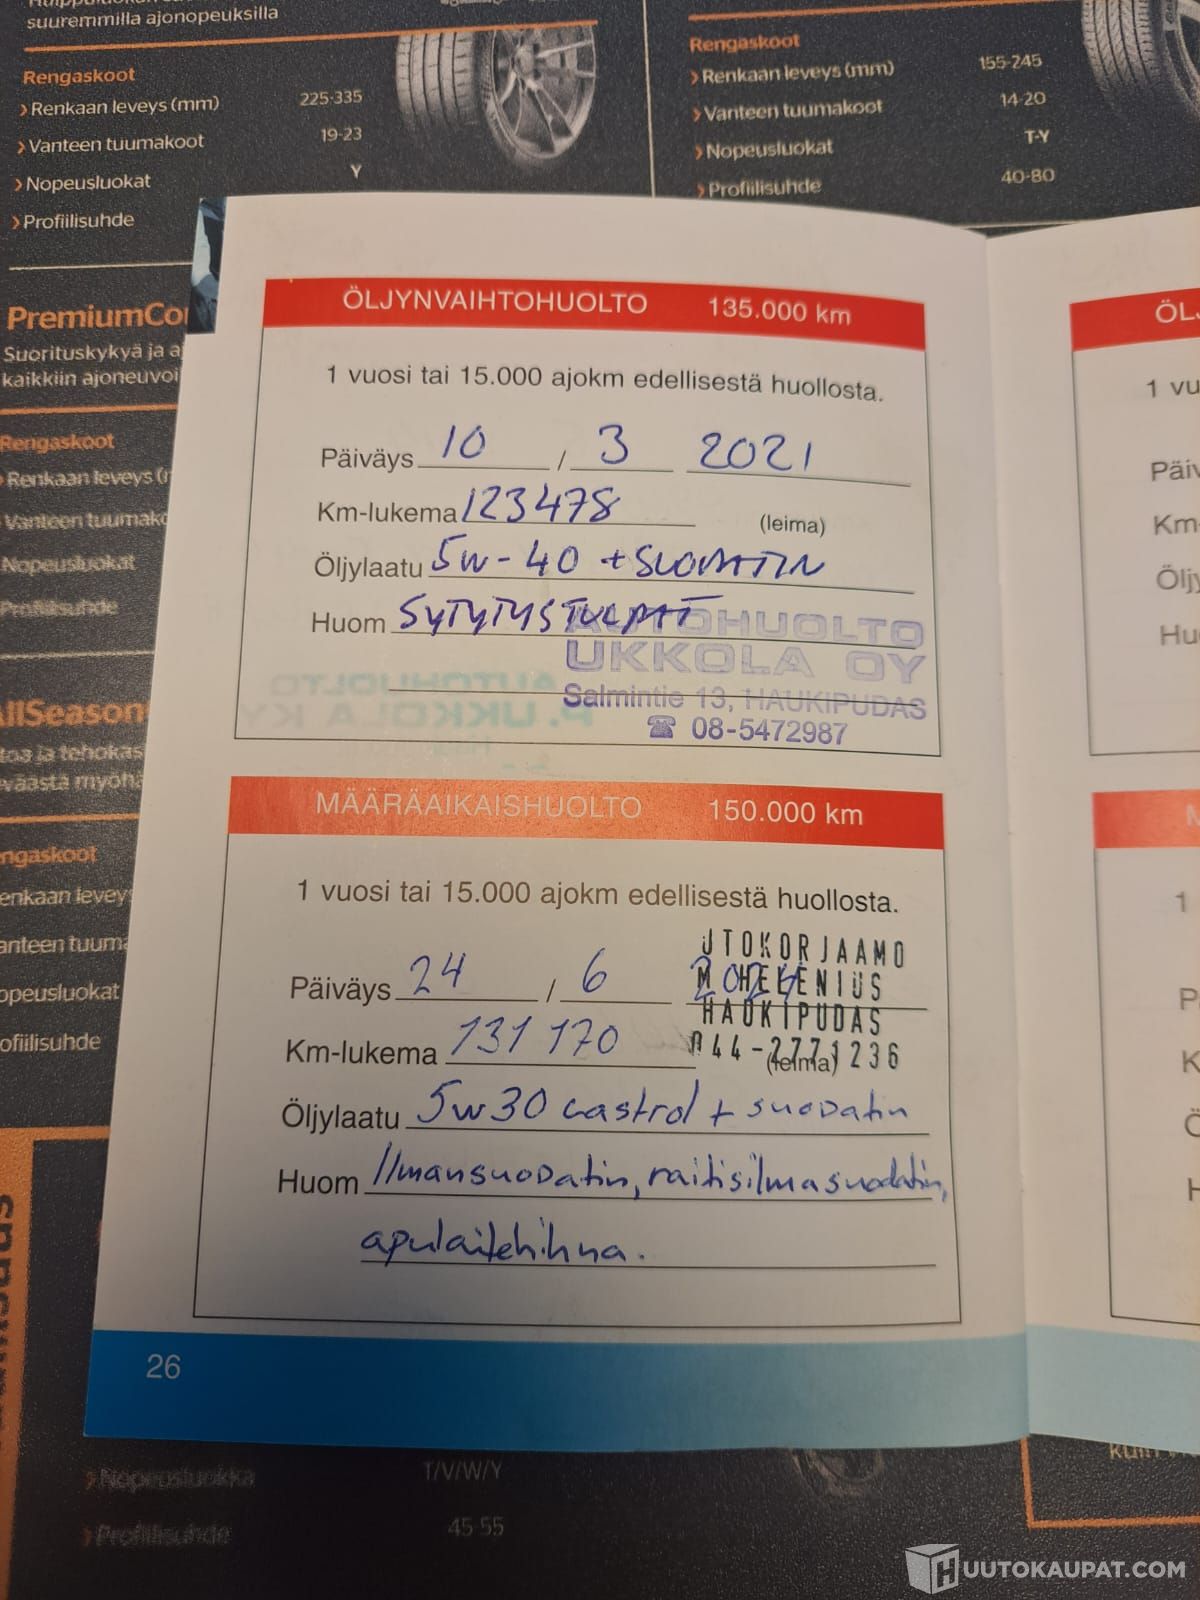 suuremmilla ajonopeuksilla
Rengaskoot
›Renkaan leveys (mm) 225-335
›Vanteen tuumakoot 19-23
›Nopeusluokat Y
›Profiilisuhde
Rengaskoot
›Renkaan leveys (mm) 155-245
›Vanteen tuumakoot 14-20
›Nopeusluokat T-Y
›Profiilisuhde 40-80
PremiumCo
Suorituskykyä ja a
kaikkiin ajoneuvoi
Rengaskoot
Renkaan leveys (r
Vanteen tuumako
Nopeusluokat
Profiilisuhde
AllSeason
toa ja tehokas
väästä myöhä
engaskoot
enkaan levey
anteen tuuma
opeusluokat
ofiilisuhde
ÖLJYNVAIHTOHUOLTO 135.000 km
1 vuosi tai 15.000 ajokm edellisestä huollosta.
Päiväys 10 / 3 2021
Km-lukema 123478 (leima)
Öljylaatu 5W-40 + SUODATIN
Huom SYTYTYSTULPAT
AUTOHUOLTO
UKKOLA OY
Salmintie 13, HAUKIPUDAS
☎ 08-5472987
MÄÄRÄAIKAISHUOLTO 150.000 km
1 vuosi tai 15.000 ajokm edellisestä huollosta.
UTOKORJAAMO
M HELENIUS
HAUKIPUDAS
044-2771236
Päiväys 24 / 6 2024
Km-lukema 131 170 (leima)
Öljylaatu 5w30 castrol + suodatin
Huom Ilmansuodatin, raitisilmasuodatin,
apulaitehihna.
26
ÖL
1 vu
Päiv
Km-
Öljy
Hu
M
1
P
K
Ö
H
›Nopeusluokka T/V/W/Y
›Profiilisuhde 45-55
HUUTOKAUPAT.COM